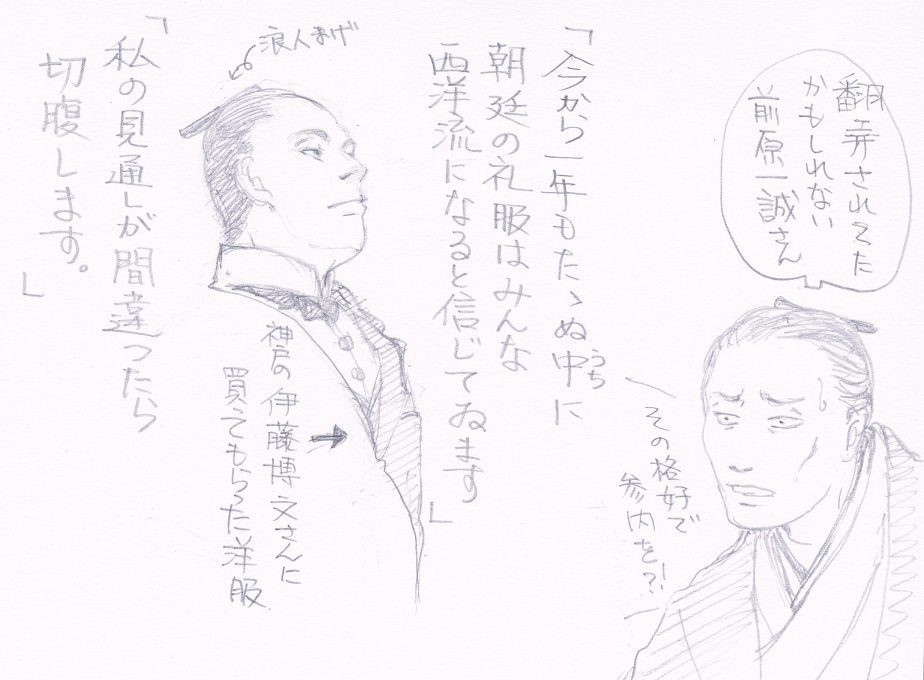 翻弄されてた
かもしれない
前原一誠さん
その格好で
参内を?!
「今から一年もたゝぬ中に
うち
朝廷の礼服はみんな
西洋流になると信じてゐます」
浪人まげ
神戸の伊藤博文さんに
買てもらった洋服
「私の見通しが間違つたら
切腹します。」